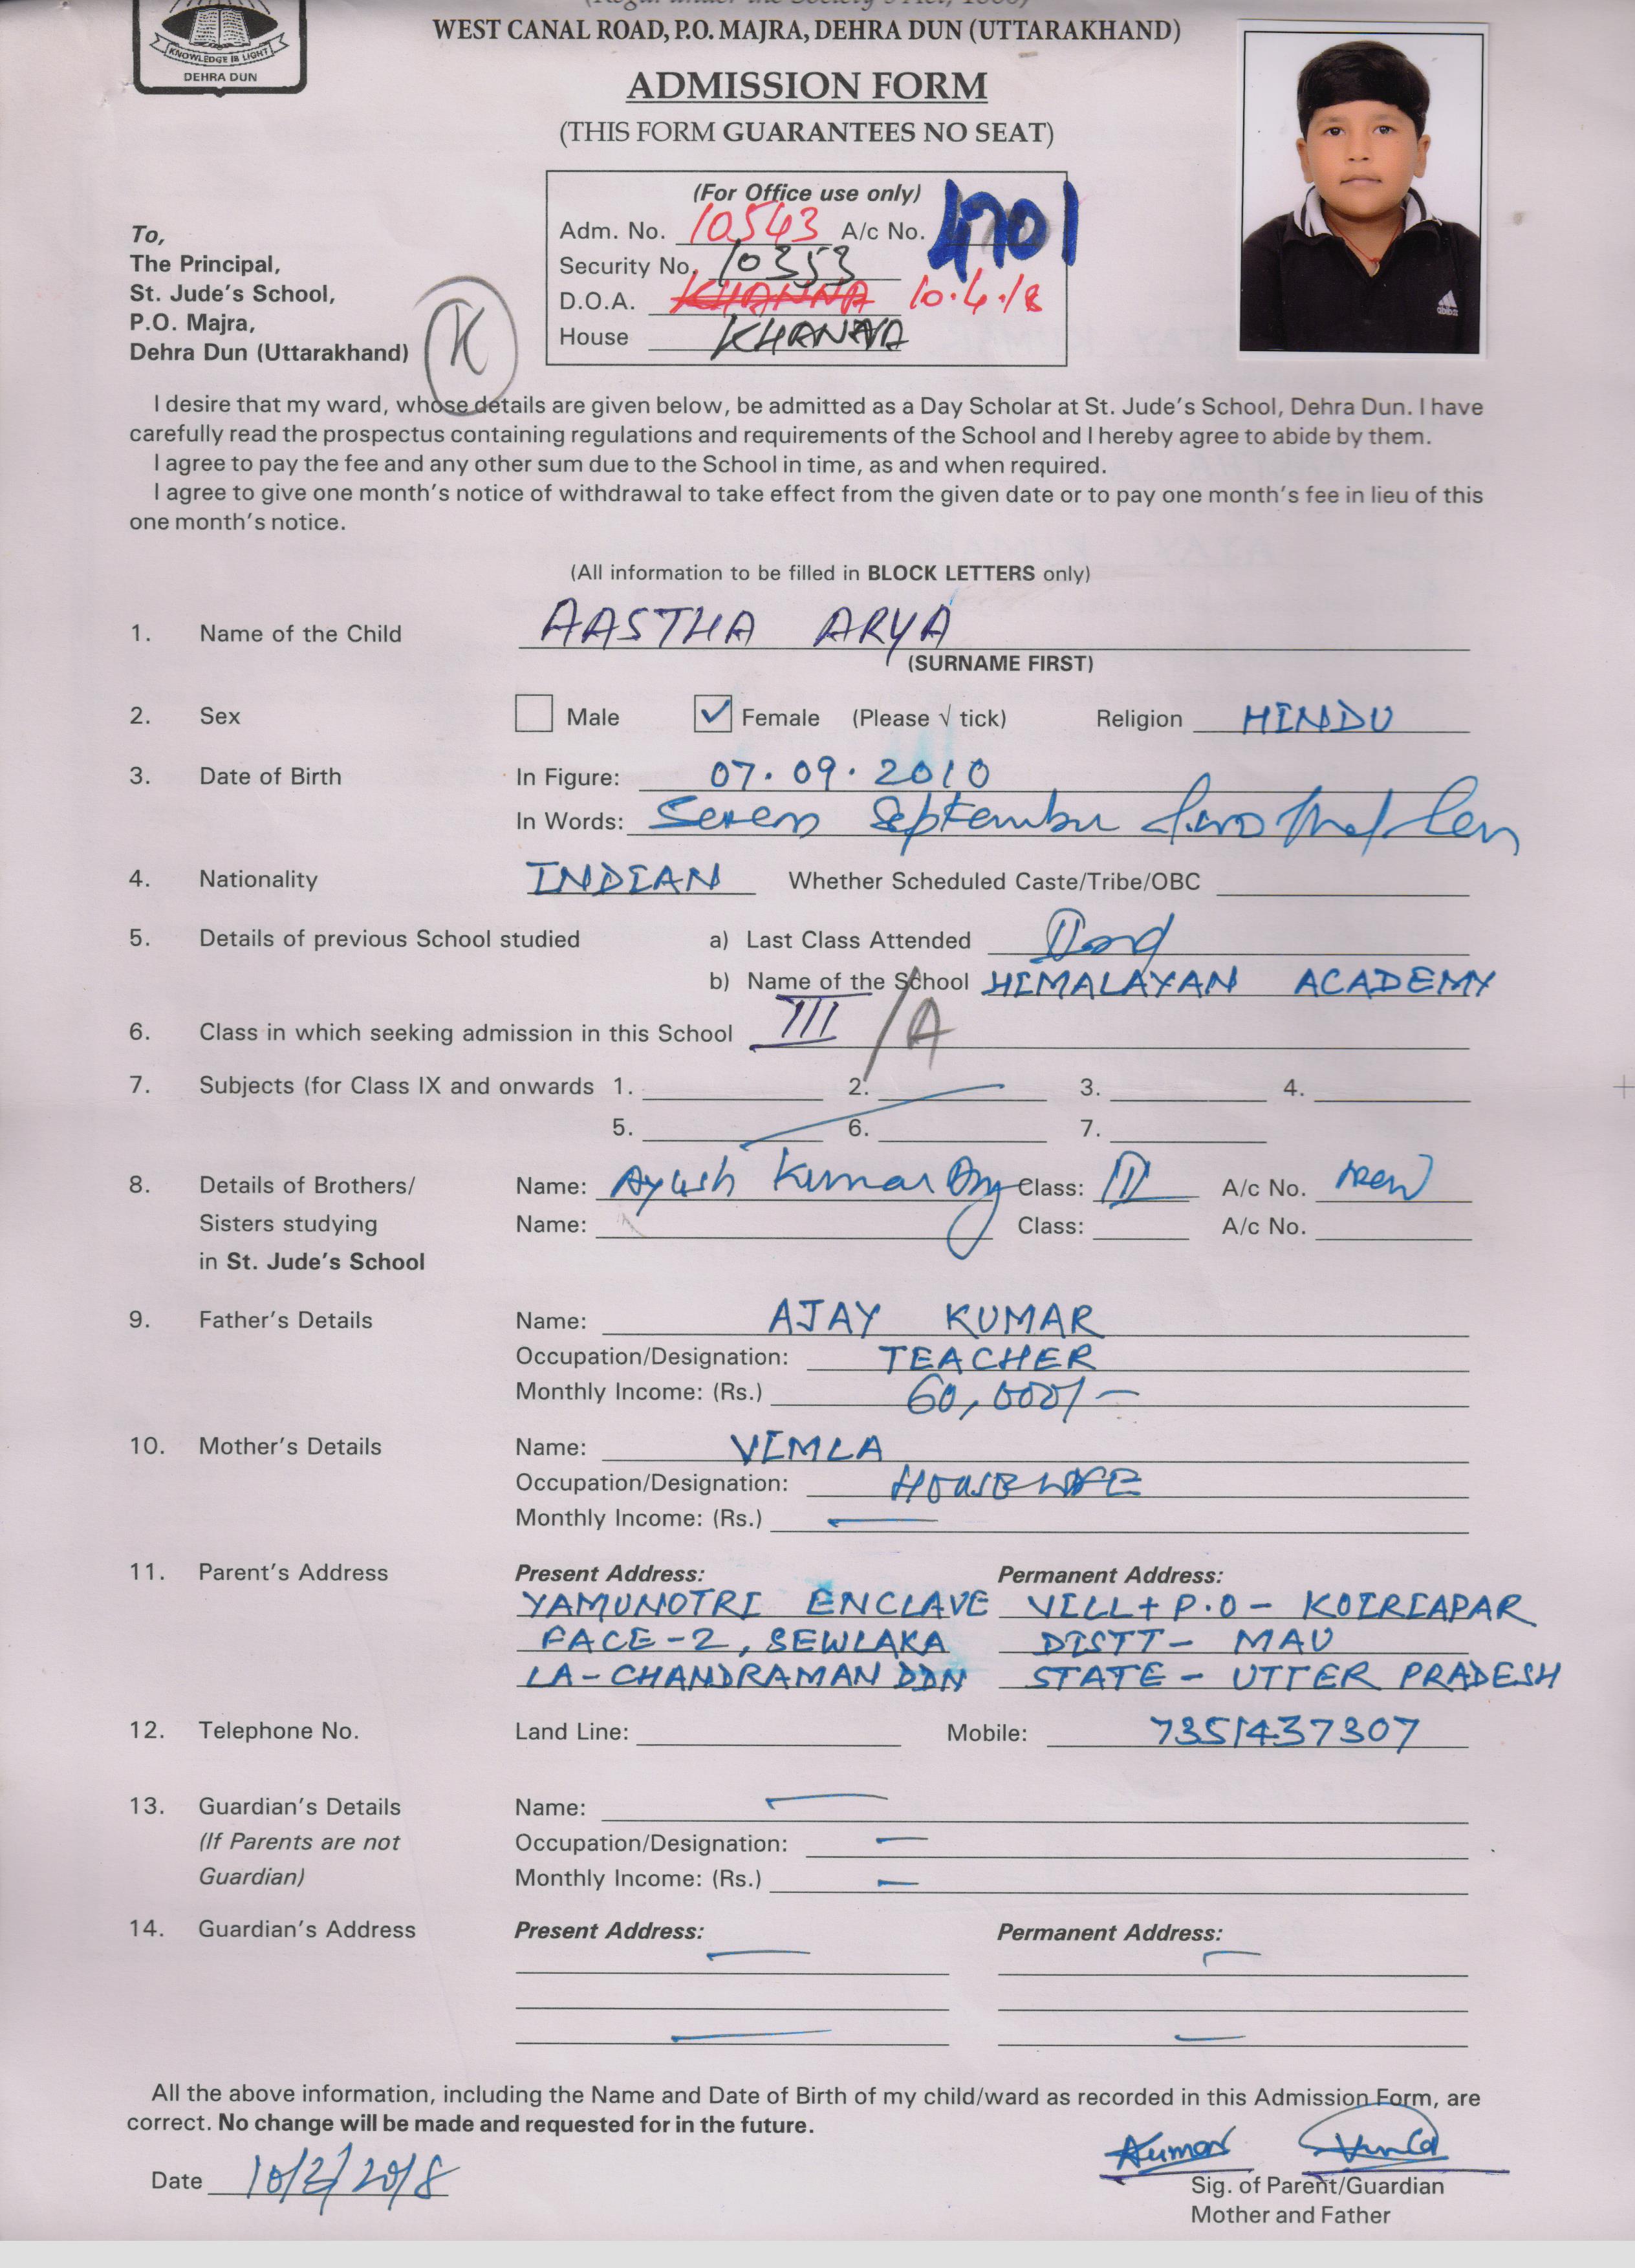 KNOWLEDGE IS LIGHT
DEHRA DUN
WEST CANAL ROAD, P.O. MAJRA, DEHRA DUN (UTTARAKHAND)
ADMISSION FORM
(THIS FORM GUARANTEES NO SEAT)
(For Office use only)
Adm. No. 10543 A/c No. 4701
Security No. 10353
D.O.A. KHANNA 10.4.18
House KHANNA
To,
The Principal,
St. Jude's School,
P.O. Majra,
Dehra Dun (Uttarakhand)
K
adidas
I desire that my ward, whose details are given below, be admitted as a Day Scholar at St. Jude's School, Dehra Dun. I have
carefully read the prospectus containing regulations and requirements of the School and I hereby agree to abide by them.
I agree to pay the fee and any other sum due to the School in time, as and when required.
I agree to give one month's notice of withdrawal to take effect from the given date or to pay one month's fee in lieu of this
one month's notice.
(All information to be filled in BLOCK LETTERS only)
1. Name of the Child AASTHA ARYA
(SURNAME FIRST)
2. Sex Male ✓ Female (Please √ tick) Religion HINDU
3. Date of Birth In Figure: 07.09.2010
In Words: Seven September
4. Nationality INDIAN Whether Scheduled Caste/Tribe/OBC
5. Details of previous School studied a) Last Class Attended
b) Name of the School HIMALAYAN ACADEMY
6. Class in which seeking admission in this School III /A
7. Subjects (for Class IX and onwards 1. 2. 3. 4.
5. 6. 7.
8. Details of Brothers/ Name: Ayush Kumar Class: A/c No. new
Sisters studying Name: Class: A/c No.
in St. Jude's School
9. Father's Details Name: AJAY KUMAR
Occupation/Designation: TEACHER
Monthly Income: (Rs.) 60,000/-
10. Mother's Details Name: VIMLA
Occupation/Designation: HOUSEWIFE
Monthly Income: (Rs.) —
11. Parent's Address Present Address: Permanent Address:
YAMUNOTRI ENCLAVE VILL+P.O- KOIRIAPAR
FACE-2, SEWLAKA DISTT- MAU
LA-CHANDRAMAN DDN STATE- UTTER PRADESH
12. Telephone No. Land Line: Mobile: 7351437307
13. Guardian's Details Name: —
(If Parents are not Occupation/Designation: —
Guardian) Monthly Income: (Rs.) —
14. Guardian's Address Present Address: Permanent Address:
All the above information, including the Name and Date of Birth of my child/ward as recorded in this Admission Form, are
correct. No change will be made and requested for in the future.
Date 10/2/2018 Kumar Vimla
Sig. of Parent/Guardian
Mother and Father